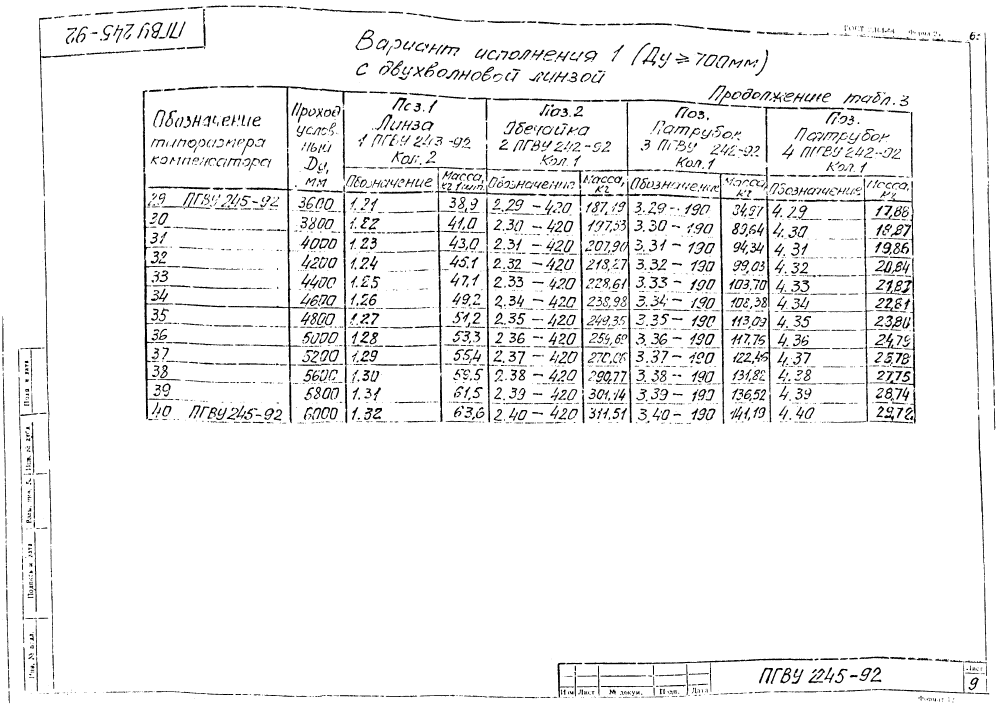 ПГВУ 245-92
Вариант исполнения 1 (Ду ≥ 700мм)
с двухволновой линзой
Продолжение табл. 3
Обозначение типоразмера компенсатора | Проход условный Ду, мм | Поз. 1 Линза 1 ПГВУ 243-92 Кол. 2 | Поз. 2 Обечайка 2 ПГВУ 242-92 Кол. 1 | Поз. Патрубок 3 ПГВУ 242-92 Кол. 1 | Поз. Патрубок 4 ПГВУ 242-92 Кол. 1
Обозначение | Масса, кг 1 шт. | Обозначение | Масса, кг | Обозначение | Масса, кг | Обозначение | Масса, кг
29 ПГВУ 245-92 | 3600 | 1.21 | 38,9 | 2.29 - 420 | 187,19 | 3.29 - 190 | | 4.29 | 17,88
30 | 3800 | 1.22 | 41,0 | 2.30 - 420 | 197,53 | 3.30 - 190 | 89,64 | 4.30 | 18,87
31 | 4000 | 1.23 | 43,0 | 2.31 - 420 | 207,90 | 3.31 - 190 | 94,34 | 4.31 | 19,86
32 | 4200 | 1.24 | 45,1 | 2.32 - 420 | 218,27 | 3.32 - 190 | 99,03 | 4.32 | 20,84
33 | 4400 | 1.25 | 47,1 | 2.33 - 420 | 228,61 | 3.33 - 190 | 103,70 | 4.33 | 21,83
34 | 4600 | 1.26 | 49,2 | 2.34 - 420 | 238,98 | 3.34 - 190 | 108,38 | 4.34 | 22,81
35 | 4800 | 1.27 | 51,2 | 2.35 - 420 | 249,35 | 3.35 - 190 | 113,09 | 4.35 | 23,80
36 | 5000 | 1.28 | 53,3 | 2.36 - 420 | 259,69 | 3.36 - 190 | 117,76 | 4.36 | 24,79
37 | 5200 | 1.29 | 55,4 | 2.37 - 420 | 270,06 | 3.37 - 190 | 122,45 | 4.37 | 25,78
38 | 5600 | 1.30 | 59,5 | 2.38 - 420 | 290,77 | 3.38 - 190 | 131,82 | 4.38 | 27,75
39 | 5800 | 1.31 | 61,5 | 2.39 - 420 | 301,14 | 3.39 - 190 | 136,52 | 4.39 | 28,74
40 ПГВУ 245-92 | 6000 | 1.32 | 63,6 | 2.40 - 420 | 311,51 | 3.40 - 190 | 141,19 | 4.40 | 29,72
Подпись и дата
Изм Лист № докум. Подп. Дата
ПГВУ 245-92
Лист
9